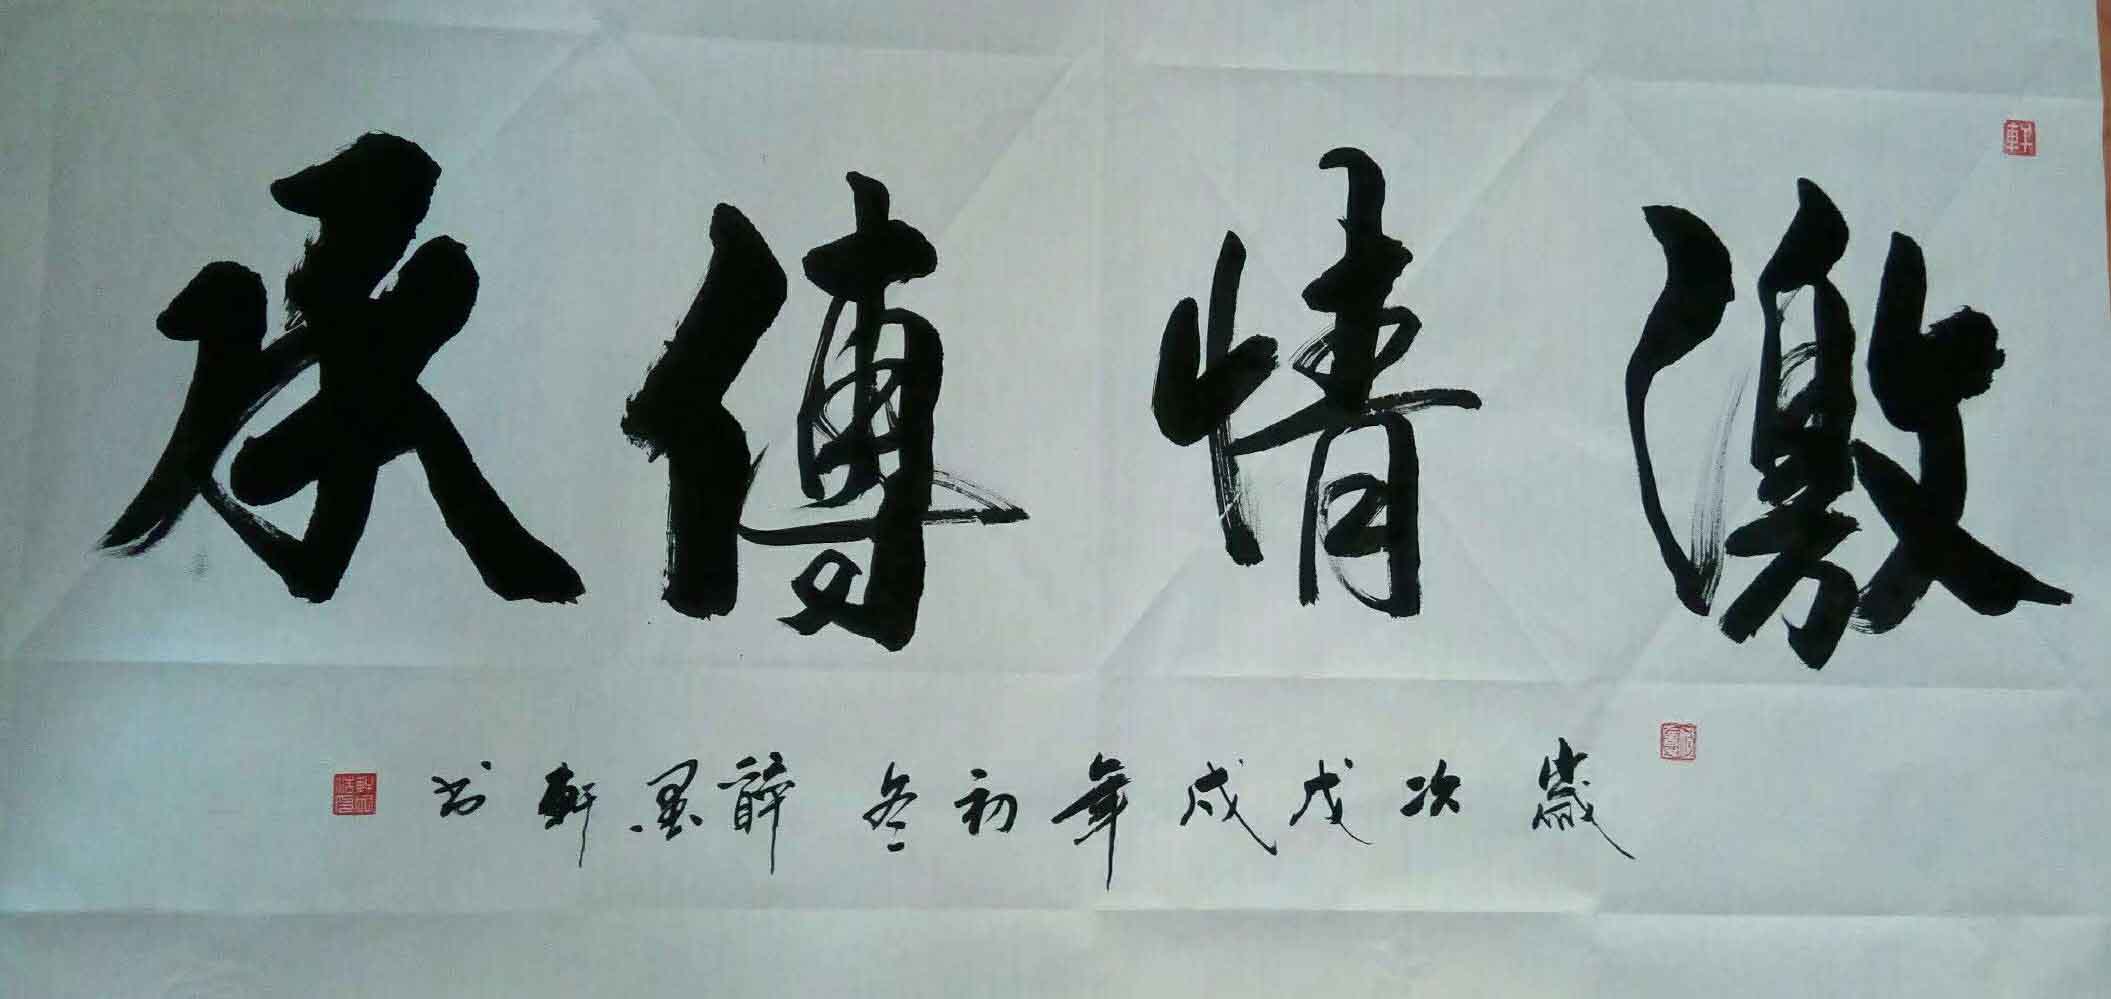 激情傳承
歲次戊戌年初冬薛墨軒书
軒